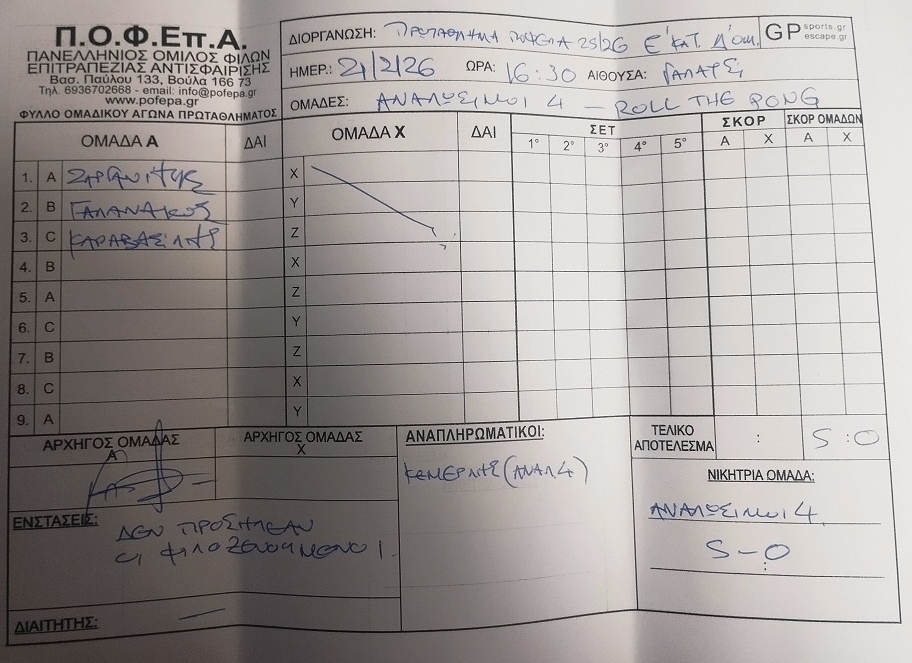 Π.Ο.Φ.Επ.Α.
ΠΑΝΕΛΛΗΝΙΟΣ ΟΜΙΛΟΣ ΦΙΛΩΝ
ΕΠΙΤΡΑΠΕΖΙΑΣ ΑΝΤΙΣΦΑΙΡΙΣΗΣ
Βασ. Παύλου 133, Βούλα 166 73
Τηλ. 6936702668 - email: info@pofepa.gr
www.pofepa.gr
ΦΥΛΛΟ ΟΜΑΔΙΚΟΥ ΑΓΩΝΑ ΠΡΩΤΑΘΛΗΜΑΤΟΣ
ΔΙΟΡΓΑΝΩΣΗ: ΠΡΩΤΑΘΛΗΜΑ ΠΟΦΕΠΑ 25/26 Ε' ΚΑΤ. Δ' ΟΜ.
GP sports.gr
escape.gr
ΗΜΕΡ.: 21/2/26 ΩΡΑ: 16:30 ΑΙΘΟΥΣΑ:
ΟΜΑΔΕΣ: ΑΝΑΛΩΣΙΜΟΙ 4 – ROLL THE PONG
ΟΜΑΔΑ Α ΔΑΙ ΟΜΑΔΑ Χ ΔΑΙ ΣΕΤ ΣΚΟΡ ΣΚΟΡ ΟΜΑΔΩΝ
1° 2° 3° 4° 5° Α Χ Α Χ
1. Α Χ
2. Β ΓΑΛΑΝΑΚΟΣ Υ
3. C ΚΑΡΑΒΑΣΙΛΗΣ Ζ
4. Β Χ
5. Α Ζ
6. C Υ
7. Β Ζ
8. C Χ
9. Α Υ
ΑΡΧΗΓΟΣ ΟΜΑΔΑΣ
Α
ΑΡΧΗΓΟΣ ΟΜΑΔΑΣ
Χ
ΑΝΑΠΛΗΡΩΜΑΤΙΚΟΙ:
ΚΕΜΕΡΛΗΣ (ΑΝΑΛ 4)
ΤΕΛΙΚΟ
ΑΠΟΤΕΛΕΣΜΑ : 5:0
ΝΙΚΗΤΡΙΑ ΟΜΑΔΑ:
ΑΝΑΛΩΣΙΜΟΙ 4
5-0
:
ΕΝΣΤΑΣΕΙΣ:
ΔΕΝ ΠΡΟΣΗΛΘΑΝ
ΟΙ ΦΙΛΟΞΕΝΟΥΜΕΝΟΙ.
ΔΙΑΙΤΗΤΗΣ: —